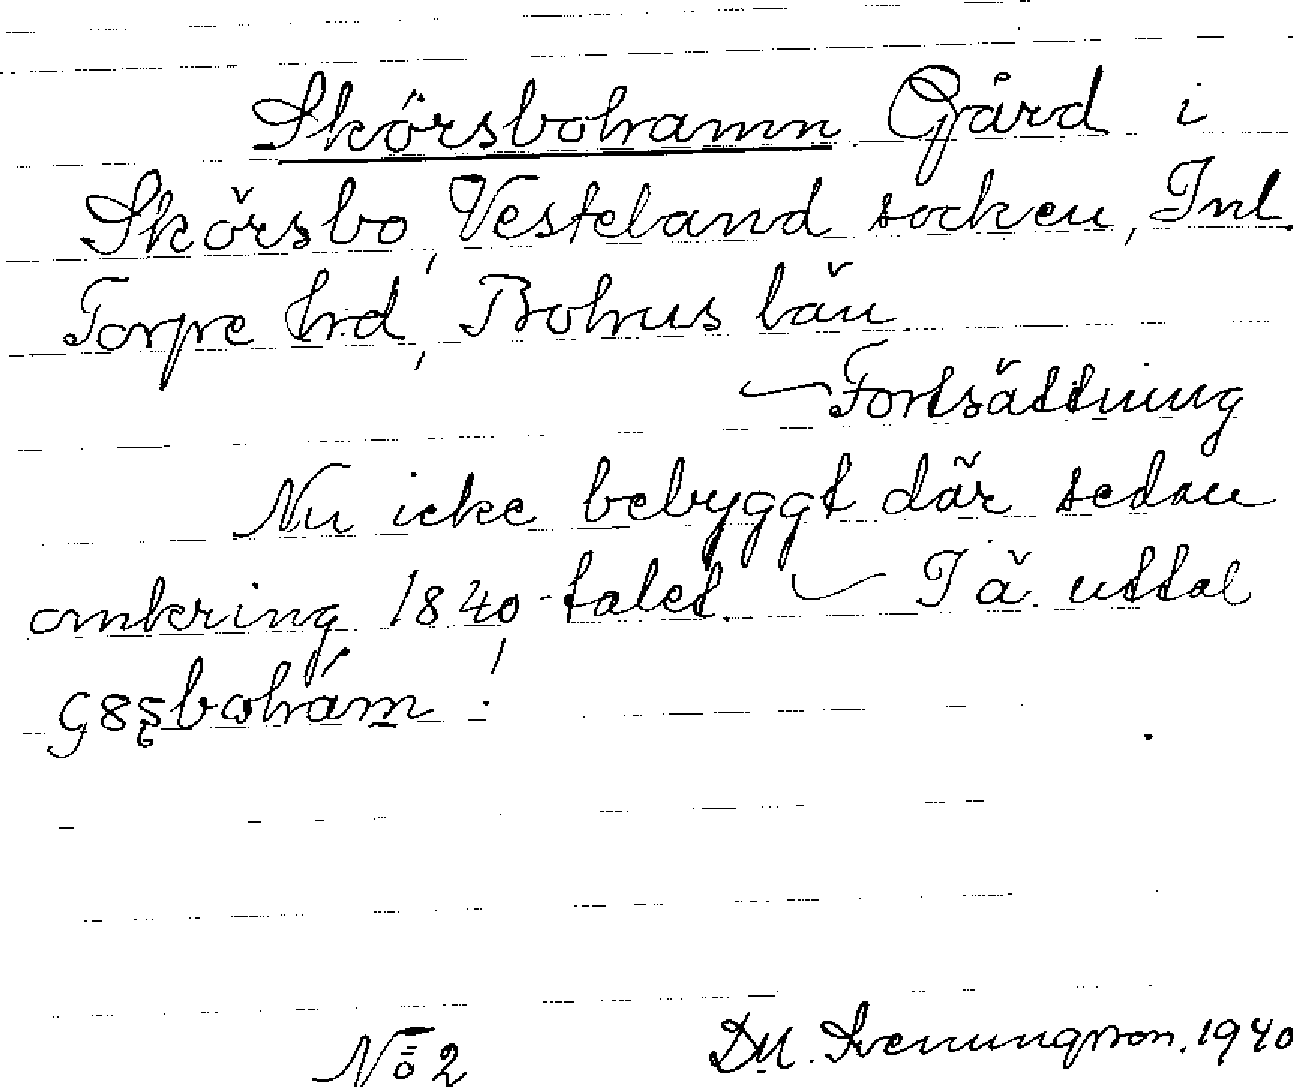 Skörsbohamn Gård i
Skörsbo, Vesteland socken, Inl.
Torpe hrd, Bohus län
— Fortsättning
Nu icke bebyggt där sedan
omkring 1840-talet. — I ä. uttal
bohám!
No 2 D.M. Svenungsson. 1940